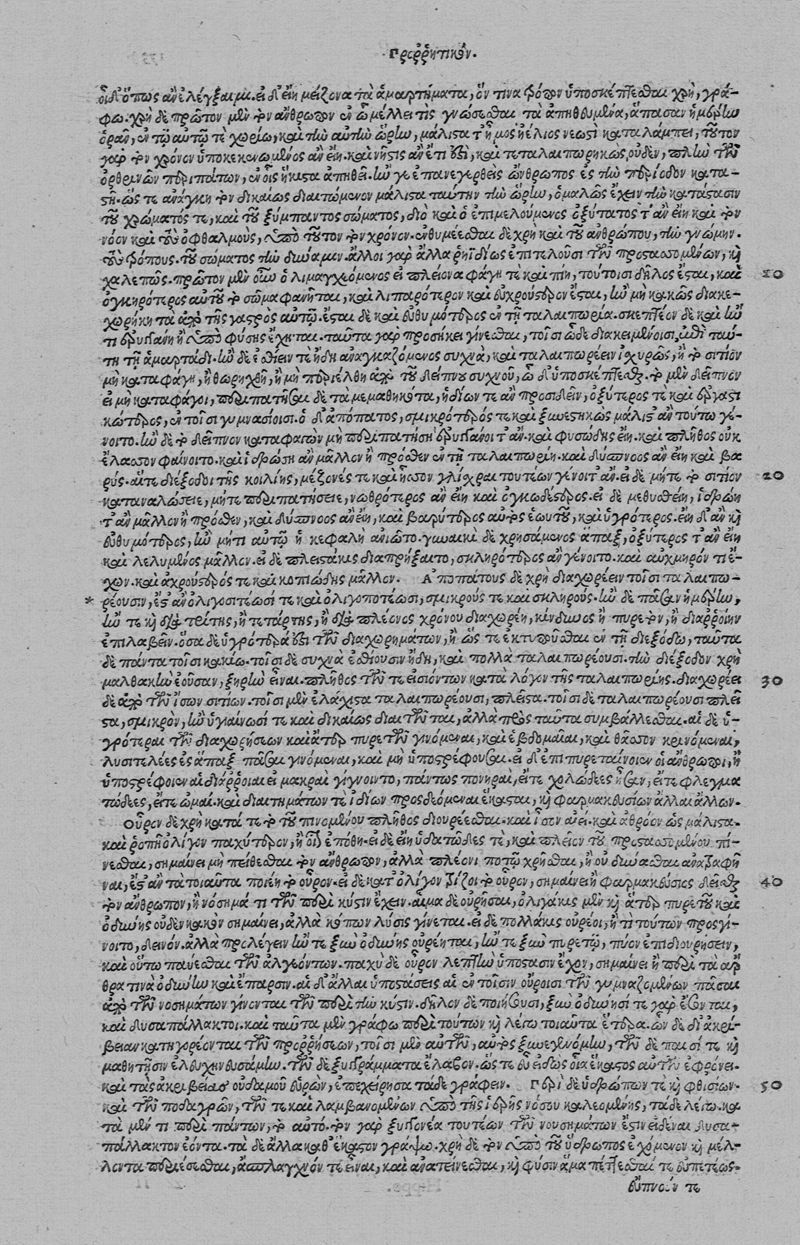 Προῤῥητικόν.
οὐδ' ὅπως ἂν ἐλέγξαιμι. εἰ δ' εἴη μείζονα τὰ ἁμαρτήματα, ὅν τινα τρόπον ὑποσκέπτεσθαι χρὴ, γρά-
φω. χρὴ δὲ πρῶτον μὲν τὸν ἄνθρωπον ἐν ᾧ μέλλει τις γνώσεσθαι τὰ ἀπηθημένα, ἅπασαν ἡμέρην
ὁρᾶν, ἐν τῷ αὐτῷ τε χωρίῳ, καὶ τὴν αὐτὴν ὥρην, μάλιστα τῆμος ἥλιος νεωστὶ καταλάμπει, τοῦτον
γὰρ τὸν χρόνον ὑποκεκενωμένος ἂν εἴη. καὶ νῆστις ἂν ἔτι ἐστὶ, καὶ τεταλαιπωρηκὼς οὐδὲν, πλὴν τῶν
ὀρθρινῶν περιπάτων, ἐν οἷς ἥκιστα
τοῦ χρώματός τε, καὶ τοῦ ξύμπαντος σώματος, διὸ καὶ ὁ ἐπιμελούμενος ὀξύτατος τ' ἂν εἴη καὶ τὸν
νόον καὶ τοὺς ὀφθαλμοὺς, ὑπὸ τοῦτον τὸν χρόνον. ἐνθυμέεσθαι δὲ χρὴ καὶ τοῦ ἀνθρώπου, τὴν γνώμην.
τοὺς τρόπους. τοῦ σώματος τὴν δύναμιν. ἄλλοι γὰρ ἄλλα ῥηϊδίως ἐπιτελοῦσι τῶν προστασσομένων, καὶ
χαλεπῶς. πρῶτον μὲν οὖν ὁ λιμαγχεόμενος εἰ πλείονα φάγῃ τε καὶ πίῃ, τούτοισι δῆλος ἔσται, καὶ 10
ὀγκηρότερος αὐτοῦ τὸ σῶμα φανῆται, καὶ λιπαρότερον καὶ εὐχρούστερον ἔσται, ἢν μὴ κακῶς διακε-
χωρήκῃ τὰ ἀπὸ τῆς γαστρὸς αὐτῷ. ἔσται δὲ καὶ εὐθυμότερος ἐν τῇ ταλαιπωρίᾳ. σκεπτέον δὲ καὶ ἤν
τι ἐρυγγάνῃ ἢ ὑπὸ φύσης ἔχηται. ταῦτα γὰρ προσήκει γίνεσθαι, τοῖσι ὧδε διακειμένοισι, ἐπὶ ταύ-
τῃ τῇ ἁμαρτάδι. ἢν δὲ ἐσθίειν τε ἤδη ἀναγκαζόμενος συχνὰ, καὶ ταλαιπωρέειν ἰσχυρῶς, ἢ τὸ σιτίον
μὴ καταφάγῃ, ἢ θωρηχθῇ, ἢ μὴ περιέλθῃ ἀπὸ τοῦ δείπνου συχνοῦ, ὧδ' ὑποσκέπτεσθαι. τὸ μὲν δεῖπνον
εἰ μὴ καταφάγοι, περιπατῆσαι δὲ τὰ μεμαθηκότα, ἡδίων τε ἂν προσιδεῖν, ὀξύτερος τε καὶ ὀργαστι
κώτερος, ἐν τοῖσι γυμνασίοισι. ὁ δ' ἀπόπατος, σμικρότερός τε καὶ ξυνεστηκὼς μάλιστ' ἂν τούτῳ γέ-
νοιτο. ἢν δὲ τὸ δεῖπνον καταφαγὼν μὴ περιπατήσῃ ἐρυγγάνοι τ' ἂν. καὶ φυσώδης εἴη. καὶ πλῆθος οὐκ
ἔλασσον φαίνοιτο. καὶ ἱδρῴη ἂν μᾶλλον ἢ πρόσθεν ἐν τῇ ταλαιπωρίῃ. καὶ δύσπνοος ἂν εἴη καὶ βα
ρύς. αἵ τε διέξοδοι τῆς κοιλίης, μέζονές τε καὶ ἧσσον γλίσχραι τουτέων γένοιντ' ἄν. εἰ δὲ μήτε τὸ σιτίον 20
καταναλώσειε, μήτε περιπατήσειε, νωθρότερος ἂν εἴη καὶ ὀγκωδέστερος. εἰ δὲ μεθυσθείη, ἱδρῴη
τ' ἂν μᾶλλον ἢ πρόσθεν, καὶ δύσπνοος ἂν εἴη, καὶ βαρύτερος αὐτὸς ἑωυτοῦ, καὶ ὑγρότερος. εἴη δ' ἂν καὶ
εὐθυμότερος, ἢν μή τι αὐτῷ ἡ κεφαλὴ ἀνιῷτο. γυναικὶ δὲ χρησάμενος ἅπαξ, ὀξύτερος τ' ἂν εἴη
καὶ λελυμένος μᾶλλον. εἰ δὲ πλειστάκις διαπρήξαιτο, σκληρότερος ἂν γένοιτο. καὶ αὐχμηρόν τι ἔ-
χων. καὶ ἀχρούστερός τε καὶ κοπιώδης μᾶλλον. Ἀποπάτους δὲ χρὴ διαχωρέειν τοῖσι ταλαιπω-
* ρέουσιν, ἔστ' ἂν ὀλιγοσιτέωσί τε καὶ ὀλιγοποτέωσι, σμικροὺς τε καὶ σκληροὺς. ἢν δὲ πᾶσαν ἡμέρην,
ἤν τε καὶ διὰ τρίτης, ἢ τετάρτης, ἢ διὰ πλέονος χρόνου διαχωρέῃ, κίνδυνος ἢ πυρετὸν, ἢ διάῤῥοιην
ἐπιλαβεῖν. ὅσα δὲ ὑγρότερά ἐστι τῶν διαχωρημάτων, ἢ ὥστε ἐκτυποῦσθαι ἐν τῇ διεξόδῳ, ταῦτα
δὲ πάντα τοῖσι κακίω. τοῖσι δὲ συχνὰ ἐσθίουσιν ἤδη, καὶ πολλὰ ταλαιπωρέουσι. τὴν διέξοδον χρὴ
μαλθακὴν ἐοῦσαν, ξηρὴν εἶναι. πλῆθος τῶν τε εἰσιόντων κατὰ λόγον τῆς ταλαιπωρίης. διαχωρέει 30
δὲ ἀπὸ τῶν ἴσων σιτίων. τοῖσι μὲν ἐλάχιστα ταλαιπωρέουσι, πλεῖστα. τοῖσι δὲ ταλαιπωρέουσι πλεῖ
στα, σμικρόν, ἢν ὑγιαίνωσί τε καὶ δικαίως διαιτῶνται, ἀλλὰ πρὸς ταῦτα συμβάλλεσθαι. αἱ δὲ ὑ-
γρότεραι τῶν διαχωρήσεων καὶ ἄτερ πυρετῶν γινόμεναι, καὶ ἑβδομαῖαι, καὶ θᾶσσον κρινόμεναι,
λυσιτελέες ἐσάπαξ πᾶσαι γινόμεναι, καὶ μὴ ὑποστρέφουσαι. εἰ δ' ἐπιπυρεταίνοιεν οἱ ἄνθρωποι, ἢ
ὑποστρέφοιεν αἱ διάῤῥοιαι εἰ μακραὶ γίγνοιντο, πάντως πονηραὶ, εἴτε χολώδεες ἔωσιν, εἴτε φλεγμα
τώδεες, εἴτε ὠμαὶ. καὶ διαιτημάτων τε ἰδίων προσδεόμεναι ἕκασται, καὶ φαρμακευσίων ἄλλαι ἄλλων.
Οὖρον δὲ χρὴ κατά τε τὸ τοῦ πινομένου πλῆθος διουρέεσθαι. καὶ ἴσον αἰεὶ. καὶ ἀθρόον ὡς μάλιστα.
καὶ ῥοπῇ ὀλίγον παχύτερον, ἢ οἷον ἐπόθη. εἰ δὲ εἴη ὑδατῶδές τε, καὶ πλεῖον τοῦ προστασσομένου πί-
νεσθαι, σημαίνει μὴ πείθεσθαι τὸν ἄνθρωπον, ἀλλὰ πλέονι ποτῷ χρῆσθαι, ἢ οὐ δύνασθαι ἀναξαφῆ
ναι, ἔστ' ἂν τὰ τοιαῦτα ποιέῃ τὸ οὖρον. εἰ δὲ κατ' ὀλίγον τρίζοι τὸ οὖρον, σημαίνει ἢ φαρμακεύσιος δεῖσθαι 40
τὸν ἄνθρωπον, ἢ νόσημά τι τῶν περὶ κύστιν ἔχειν. αἷμα δὲ οὐρῆσαι, ὀλιγάκις μὲν καὶ ἄτερ πυρετοῦ καὶ
ὀδύνης οὐδὲν κακὸν σημαίνει, ἀλλὰ κόπων λύσις γίνεται. εἰ δὲ πολλάκις οὐρέοι, ἤ τι τούτων προσγί-
νοιτο, δεινόν. ἀλλὰ προλέγειν ἤν τε ξὺν ὀδύνῃς οὐρέηται, ἤν τε ξὺν πυρετῷ, πῦον ἐπιδιουρήσειν,
καὶ οὕτω παύεσθαι τῶν ἀλγεόντων. παχὺ δὲ οὖρον λεπτὴν ὑπόστασιν ἔχον, σημαίνει ἢ περὶ τὰ ἄρ
θρα τινὰ ὀδύνην καὶ ἔπαρσιν. αἱ δ' ἄλλαι ὑποστάσεις αἱ ἐν τοῖσιν οὔροισι τῶν γυμναζομένων πᾶσαι
ἀπὸ τῶν νοσημάτων γίνονται τῶν περὶ τὴν κύστιν. δῆλον δὲ ποιήσουσι, ξὺν ὀδύνῃσί τε γὰρ ἔσονται,
καὶ δυσαπάλλακτοι. καὶ ταῦτα μὲν γράφω περὶ τούτων καὶ λέγω τοιαῦτα ἕτερα. ὧν δὲ δι' ἀκρί-
βειαν κατηγορέονται τῶν προῤῥήσεων, τοῖσι μὲν αὐτῶν, αὐτὸς ξυνεγενόμην, τῶν δὲ παισί τε καὶ
μαθητῇσιν ἐλεσχηνευσάμην. τῶν δὲ ξυγγράμματα ἔλαβον. ὥστε εὖ εἰδὼς οἷα ἕκαστος αὐτῶν ἐφρόνει.
καὶ τὰς ἀκριβείας οὐδαμοῦ εὑρὼν, ἐπεχείρησα τάδε γράφειν. Περὶ δὲ ὑδρώπων τε καὶ φθισίων. 50
καὶ τῶν ποδαγρῶν, τῶν τε καὶ λαμβανομένων ὑπὸ τῆς ἱερῆς νόσου καλεομένης, τάδε λέγω. κα
τὰ μέν τι περὶ πάντων, τὸ αὐτό. τὸν γὰρ ξυγγενέα τουτέων τῶν νουσημάτων ἔστιν εἰδέναι δυσα-
πάλλακτον ἐόντα. τὰ δὲ ἄλλα καθ' ἕκαστον γράψω. χρὴ δὲ τὸν ὑπὸ τοῦ ὕδρωπος ἐχόμενον καὶ μέλ-
λοντα περιέσεσθαι, εὔσπλαγχνόν τε εἶναι, καὶ ἀνατείνεσθαι, καὶ φύσιν ἅμα πέττεσθαί τε εὐπετέως.
εὔπνοόν τε